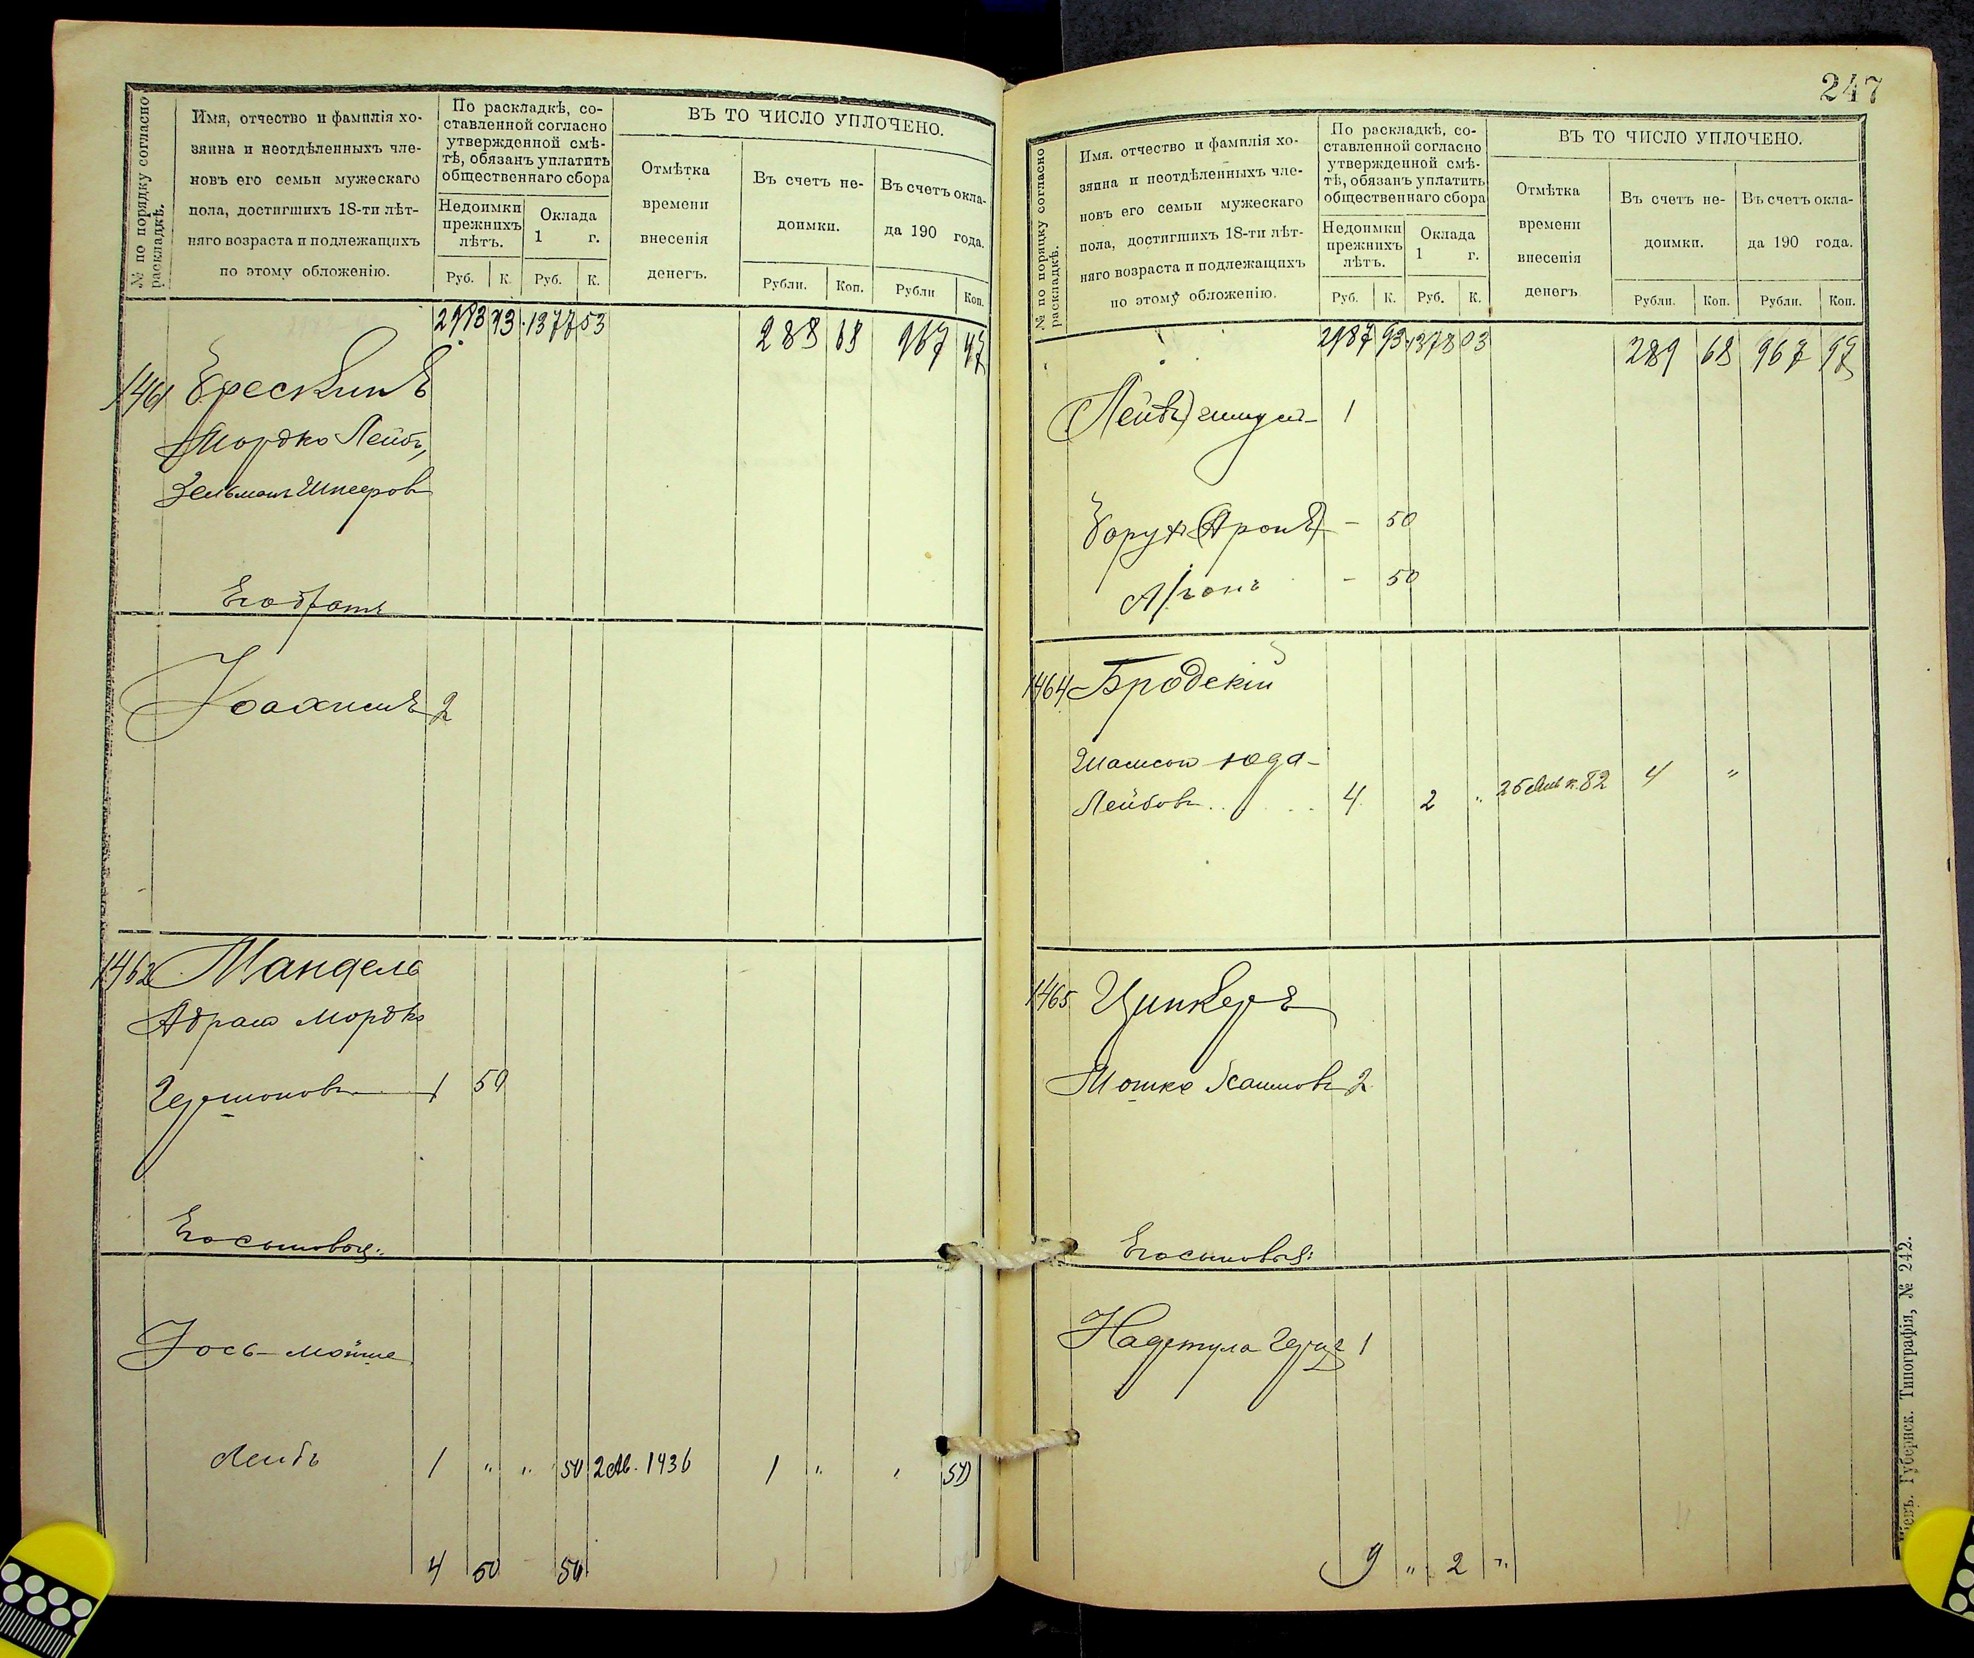 № по порядку согласно раскладкѣ.
Имя, отчество и фамилія хо-
зяина и неотдѣленныхъ чле-
новъ его семьи мужескаго
пола, достигшихъ 18-ти лѣт-
няго возраста и подлежащихъ
по этому обложенію.
По раскладкѣ, со-
ставленной согласно
утвержденной смѣ-
тѣ, обязанъ уплатить
общественнаго сбора
Недоимки
прежнихъ
лѣтъ.
Оклада
1 г.
Руб. К. Руб. К.
ВЪ ТО ЧИСЛО УПЛОЧЕНО.
Отмѣтка
времени
внесенія
денегъ.
Въ счетъ не-
доимки.
Въ счетъ окла-
да 190 года.
Рубли. Коп. Рубли Коп.
2983 93 1377 53 288 68 967 47
1461
Мордко Лейбъ,
Зельманъ
Его братъ
2
1462 Мандель
Абрам Мордко
Гершоновъ 1 50
Его сыновья:
Іось-мойше
Лейбъ 1 " " 50 2 Ав. 1436 1 " " 50
4 50 50
247
№ по порядку согласно раскладкѣ.
Имя. отчество и фамилія хо-
зяина и неотдѣленныхъ чле-
новъ его семьи мужескаго
пола, достигшихъ 18-ти лѣт-
няго возраста и подлежащихъ
по этому обложенію.
По раскладкѣ, со-
ставленной согласно
утвержденной смѣ-
тѣ, обязанъ уплатить
общественнаго сбора
Недоимки
прежнихъ
лѣтъ.
Оклада
1 г.
Руб. К. Руб. К.
ВЪ ТО ЧИСЛО УПЛОЧЕНО.
Отмѣтка
времени
внесенія
денегъ
Въ счетъ не-
доимки.
Въ счетъ окла-
да 190 года.
Рубли. Коп. Рубли. Коп.
2987 93 1378 03 289 68 967 97
1
Борух (Аронъ) - 50
Аронъ - 50
1464 Бродскій
Шамсон Юда-
Лейбовъ 4 2 " 4 "
1465 Цинкеръ
Мошко Хаимовъ 2
Его сыновья:
1
9 " 2 "
Кіевъ. Губернск. Типографія, № 242.